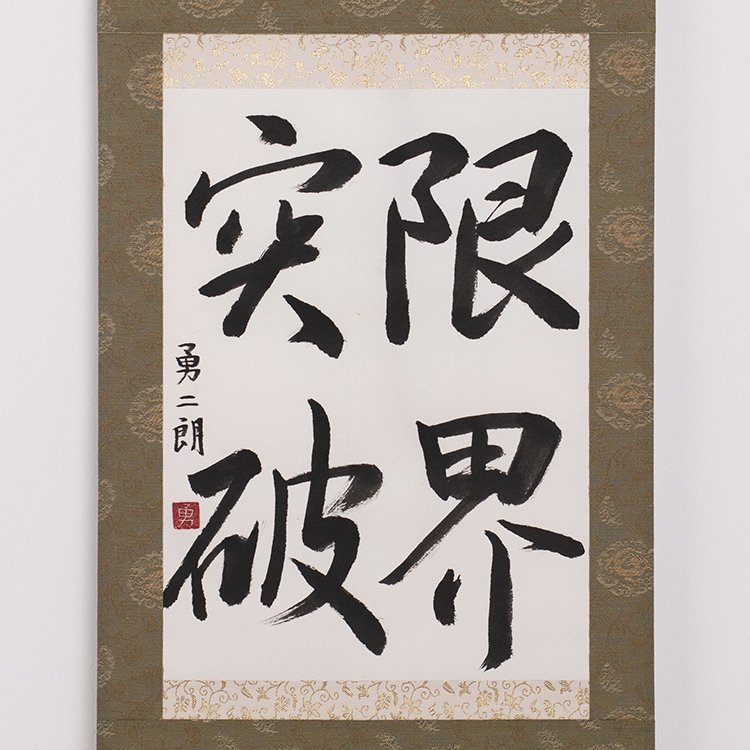 限界
突破
勇二朗
勇